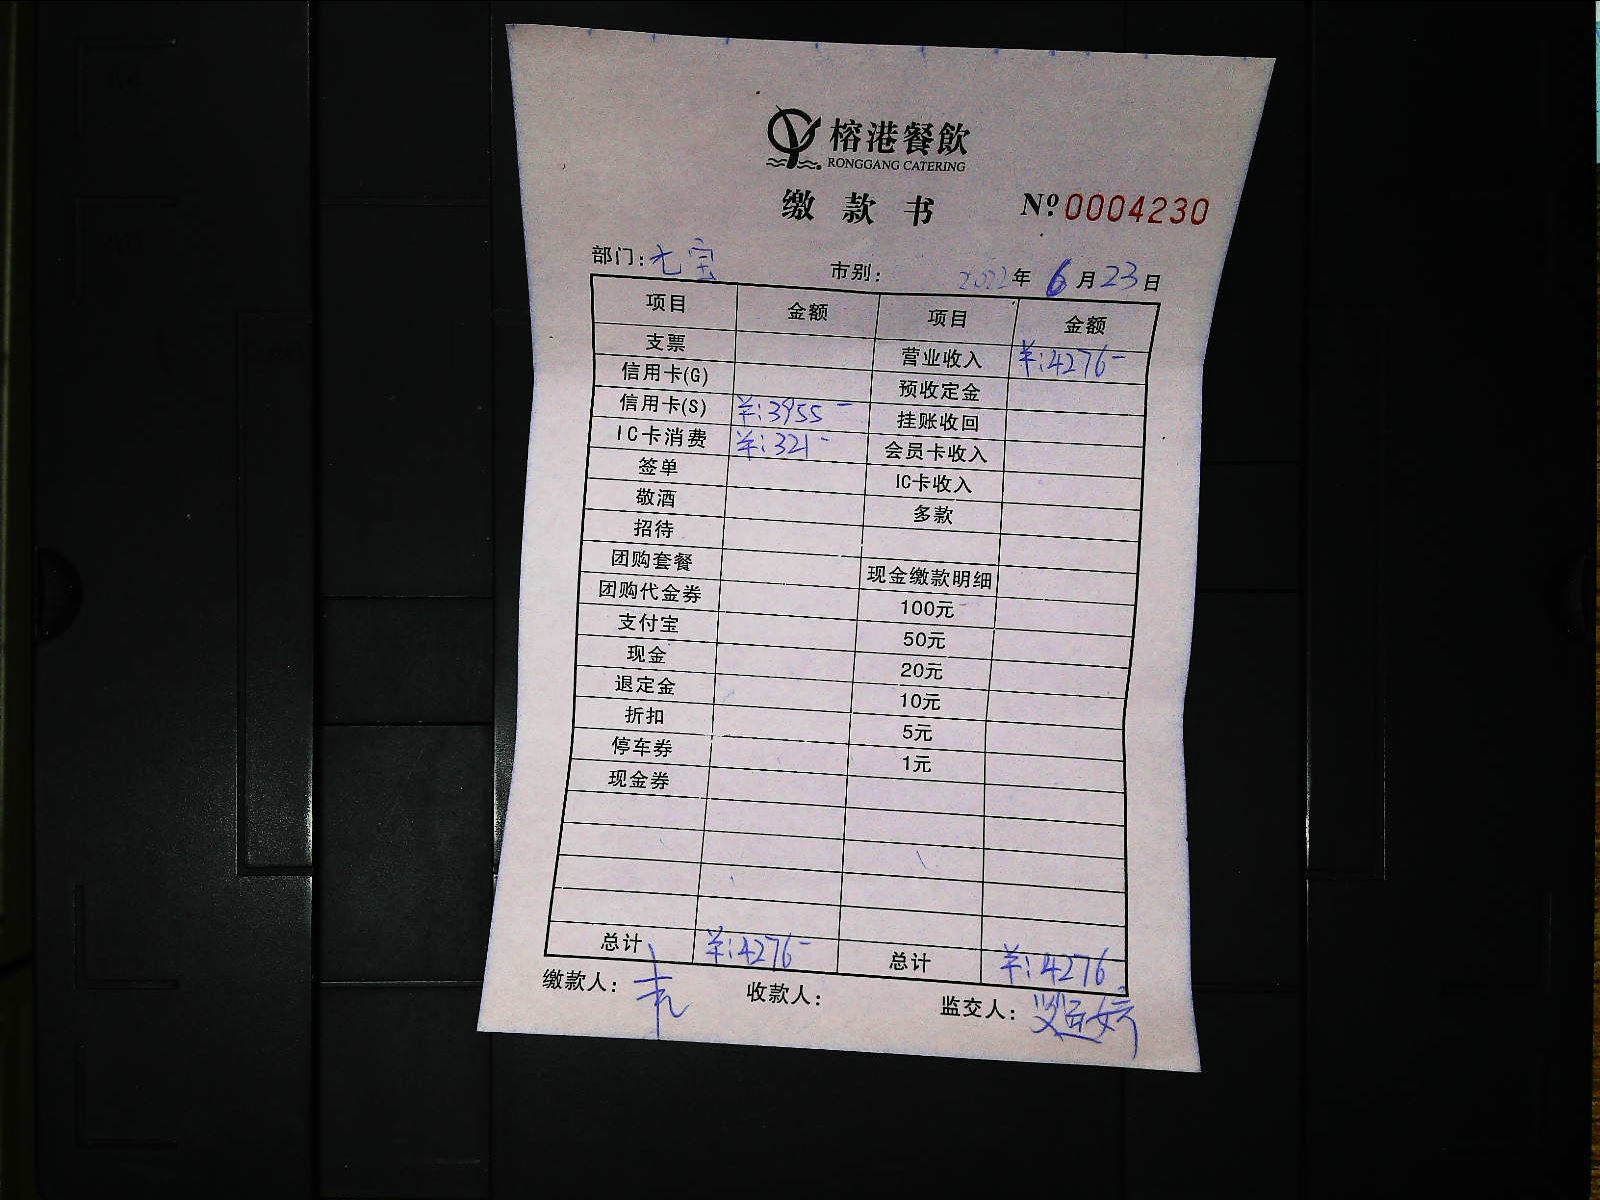 榕港餐飲
RONGGANG CATERING
缴款书 Nº 0004230
部门: 七宝 市别: 2022年 6月23日
项目 金额 项目 金额
支票 营业收入 ¥:4276-
信用卡(G) 预收定金
信用卡(S) ¥:3955- 挂账收回
IC卡消费 ¥:321- 会员卡收入
签单 IC卡收入
敬酒 多款
招待
团购套餐 现金缴款明细
团购代金券 100元
支付宝 50元
现金 20元
退定金 10元
折扣 5元
停车券 1元
现金券
总计 ¥:4276- 总计 ¥:4276
缴款人: 收款人: 监交人: